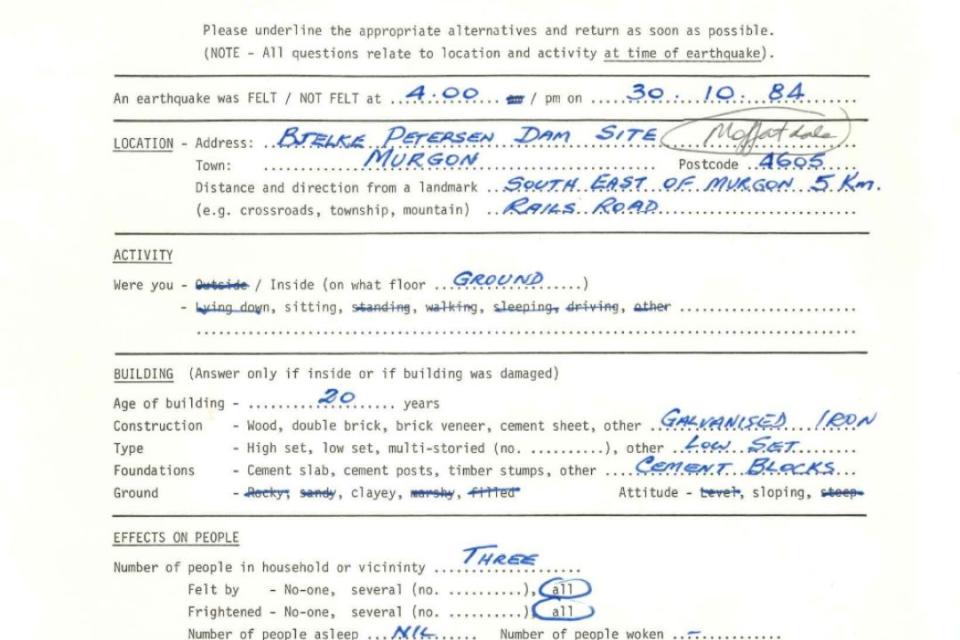 Please underline the appropriate alternatives and return as soon as possible.
(NOTE - All questions relate to location and activity at time of earthquake).
An earthquake was FELT / NOT FELT at ...4.00 / pm on ......30. 10. 84
LOCATION - Address: ..BJELKE PETERSEN DAM SITE Moffatdale
Town: ..............MURGON Postcode ..4605
Distance and direction from a landmark ..SOUTH EAST OF MURGON 5 Km.
(e.g. crossroads, township, mountain) ..RAILS ROAD
ACTIVITY
Were you - Outside / Inside (on what floor ...GROUND......)
- Lying down, sitting, standing, walking, sleeping, driving, other
BUILDING (Answer only if inside or if building was damaged)
Age of building - ..........20....... years
Construction - Wood, double brick, brick veneer, cement sheet, other ..GALVANISED IRON
Type - High set, low set, multi-storied (no. ..........), other ..LOW SET
Foundations - Cement slab, cement posts, timber stumps, other ....CEMENT BLOCKS
Ground - Rocky, sandy, clayey, marshy, filled Attitude - Level, sloping, steep
EFFECTS ON PEOPLE
Number of people in household or vicininty ....THREE
Felt by - No-one, several (no. ..........), all
Frightened - No-one, several (no. ..........) all
Number of people asleep ...NIL...... Number of people woken ..-